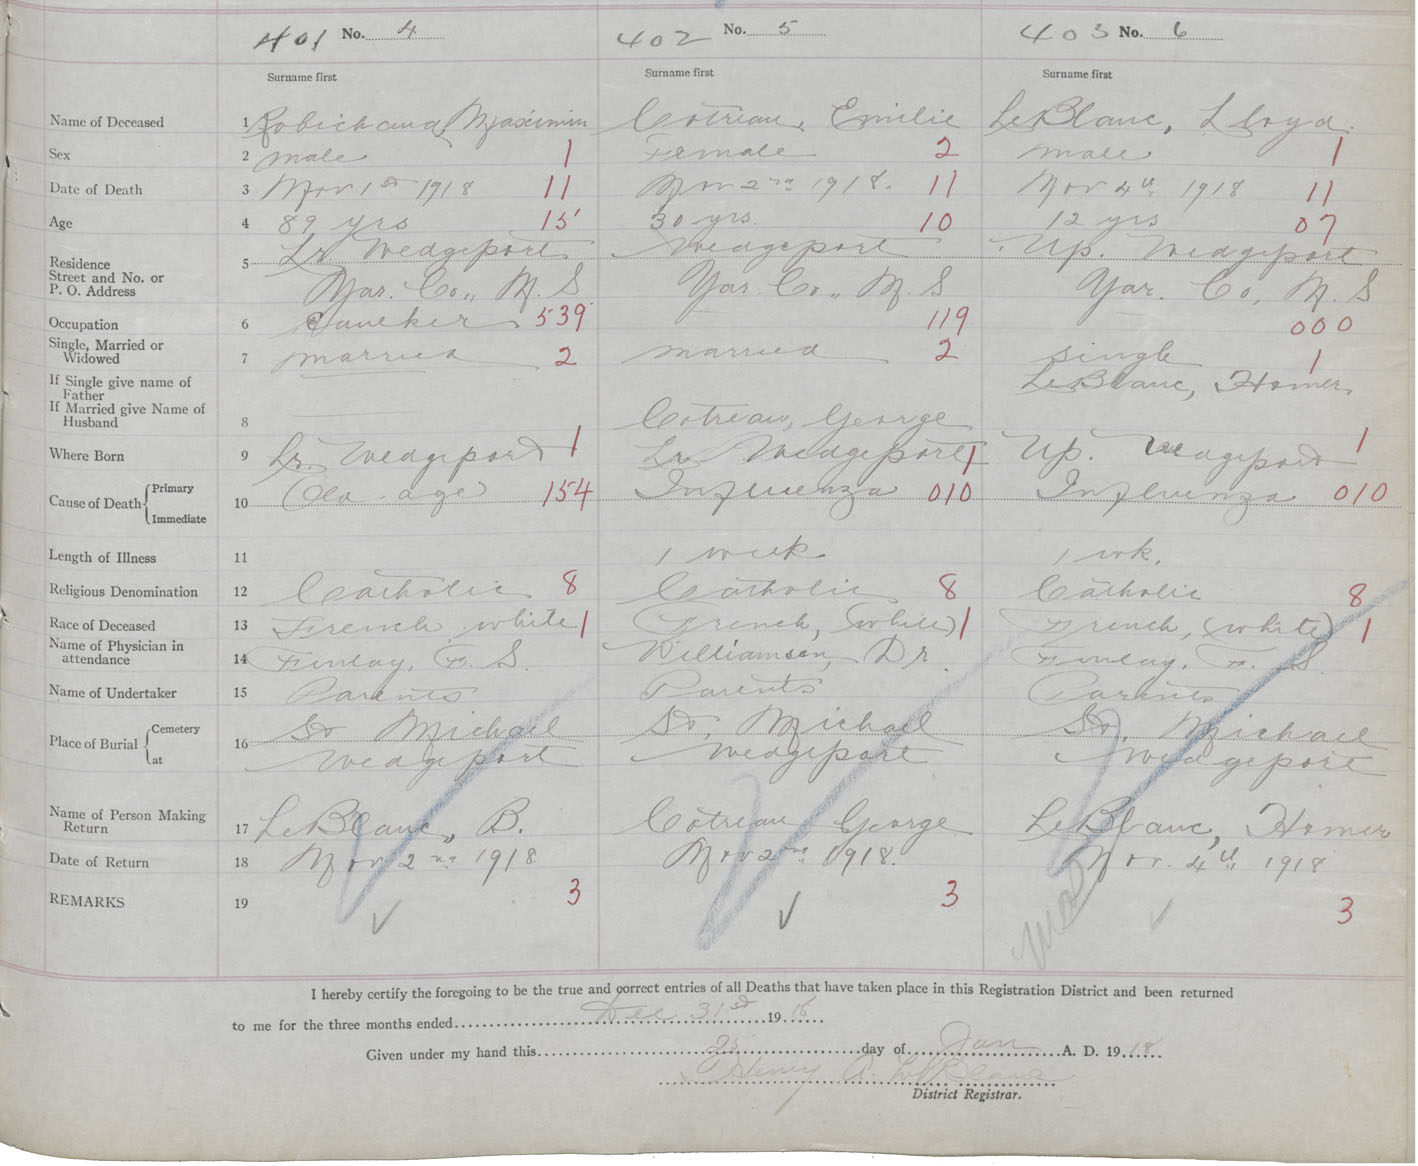 401 No. 4 402 No. 5 403 No. 6
Surname first Surname first Surname first
Name of Deceased 1 Robichaud, Maximin Cotreau, Emilie LeBlanc, Lloyd.
Sex 2 male 1 Female 2 male 1
Date of Death 3 Nov 1st 1918 11 Nov 2nd 1918. 11 Nov 4th 1918 11
Age 4 89 yrs 15 30 yrs. 10 12 yrs 07
Residence Street and No. or P. O. Address 5 Lr Wedgeport Wedgeport Up. Wedgeport
Yar. Co., N. S Yar. Co., N. S Yar. Co, N. S
Occupation 6 539 119 000
Single, Married or Widowed 7 married 2 married 2 single 1
If Single give name of Father LeBlanc, Homer
If Married give Name of Husband 8 Cotreau, George
Where Born 9 Lr. Wedgeport 1 Lr Wedgeport 1 Up. Wedgeport 1
Cause of Death Primary Immediate 10 Old age 154 Influenza 010 Influenza 010
Length of Illness 11 1 week 1 wk.
Religious Denomination 12 Catholic 8 Catholic 8 Catholic 8
Race of Deceased 13 French white 1 French, (white) 1 French, (white) 1
Name of Physician in attendance 14 Finlay, F. S. Williamson, Dr. Finlay, F. S
Name of Undertaker 15 Parents Parents Parents
Place of Burial Cemetery at 16 St Michael St, Michael St, Michael
Wedgeport Wedgeport Wedgeport
Name of Person Making Return 17 LeBlanc, B. Cotreau George LeBlanc, Homer
Date of Return 18 Nov 2nd 1918 Nov 2nd 1918. Nov. 4th 1918
REMARKS 19 3 3 3
I hereby certify the foregoing to be the true and correct entries of all Deaths that have taken place in this Registration District and been returned
to me for the three months ended Dec 31st 1918
Given under my hand this 25 day of Jan A. D. 1918
Henry A. LeBlanc
District Registrar.